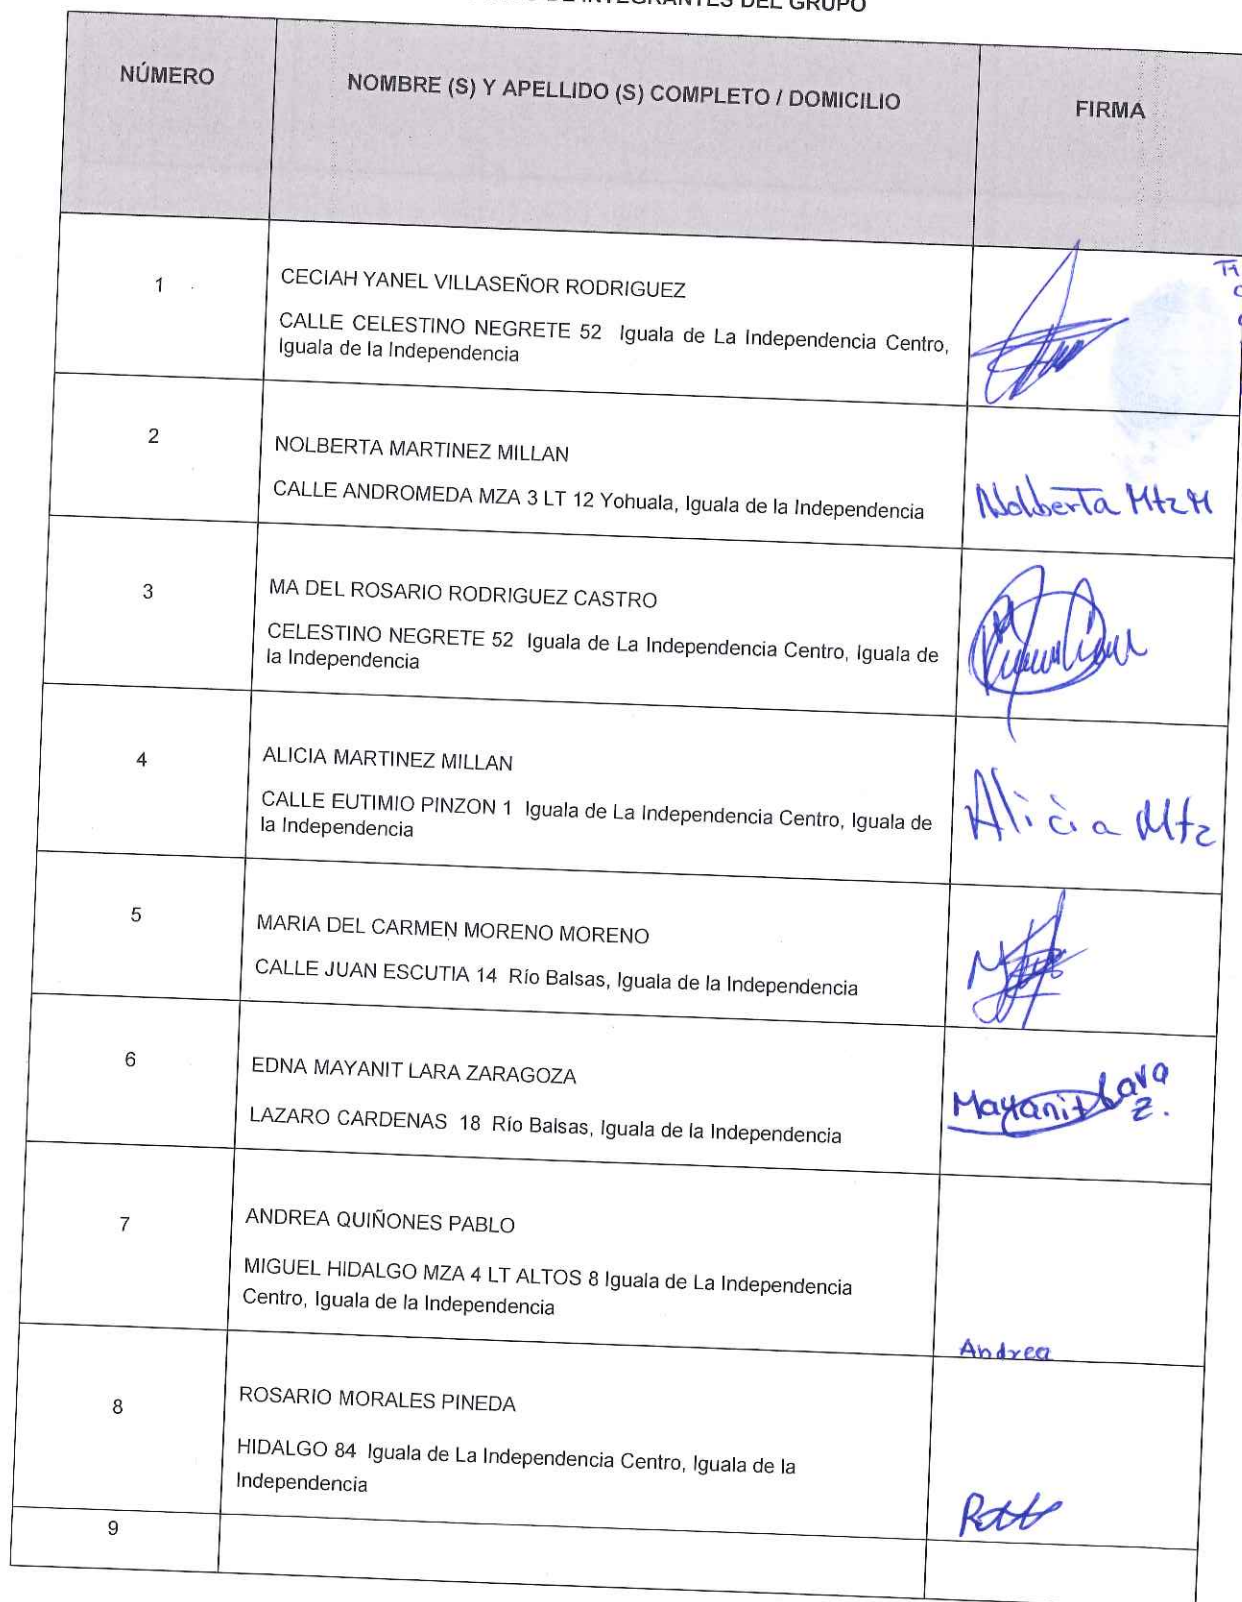 DE INTEGRANTES DEL GRUPO
NÚMERO
NOMBRE (S) Y APELLIDO (S) COMPLETO / DOMICILIO
FIRMA
1
CECIAH YANEL VILLASEÑOR RODRIGUEZ
CALLE CELESTINO NEGRETE 52 Iguala de La Independencia Centro,
Iguala de la Independencia
2
NOLBERTA MARTINEZ MILLAN
CALLE ANDROMEDA MZA 3 LT 12 Yohuala, Iguala de la Independencia
Nolberta Mtz M
3
MA DEL ROSARIO RODRIGUEZ CASTRO
CELESTINO NEGRETE 52 Iguala de La Independencia Centro, Iguala de
la Independencia
4
ALICIA MARTINEZ MILLAN
CALLE EUTIMIO PINZON 1 Iguala de La Independencia Centro, Iguala de
la Independencia
Alicia Mtz
5
MARIA DEL CARMEN MORENO MORENO
CALLE JUAN ESCUTIA 14 Río Balsas, Iguala de la Independencia
6
EDNA MAYANIT LARA ZARAGOZA
LAZARO CARDENAS 18 Río Balsas, Iguala de la Independencia
Mayanit Lara
Z.
7
ANDREA QUIÑONES PABLO
MIGUEL HIDALGO MZA 4 LT ALTOS 8 Iguala de La Independencia
Centro, Iguala de la Independencia
Andrea
8
ROSARIO MORALES PINEDA
HIDALGO 84 Iguala de La Independencia Centro, Iguala de la
Independencia
9